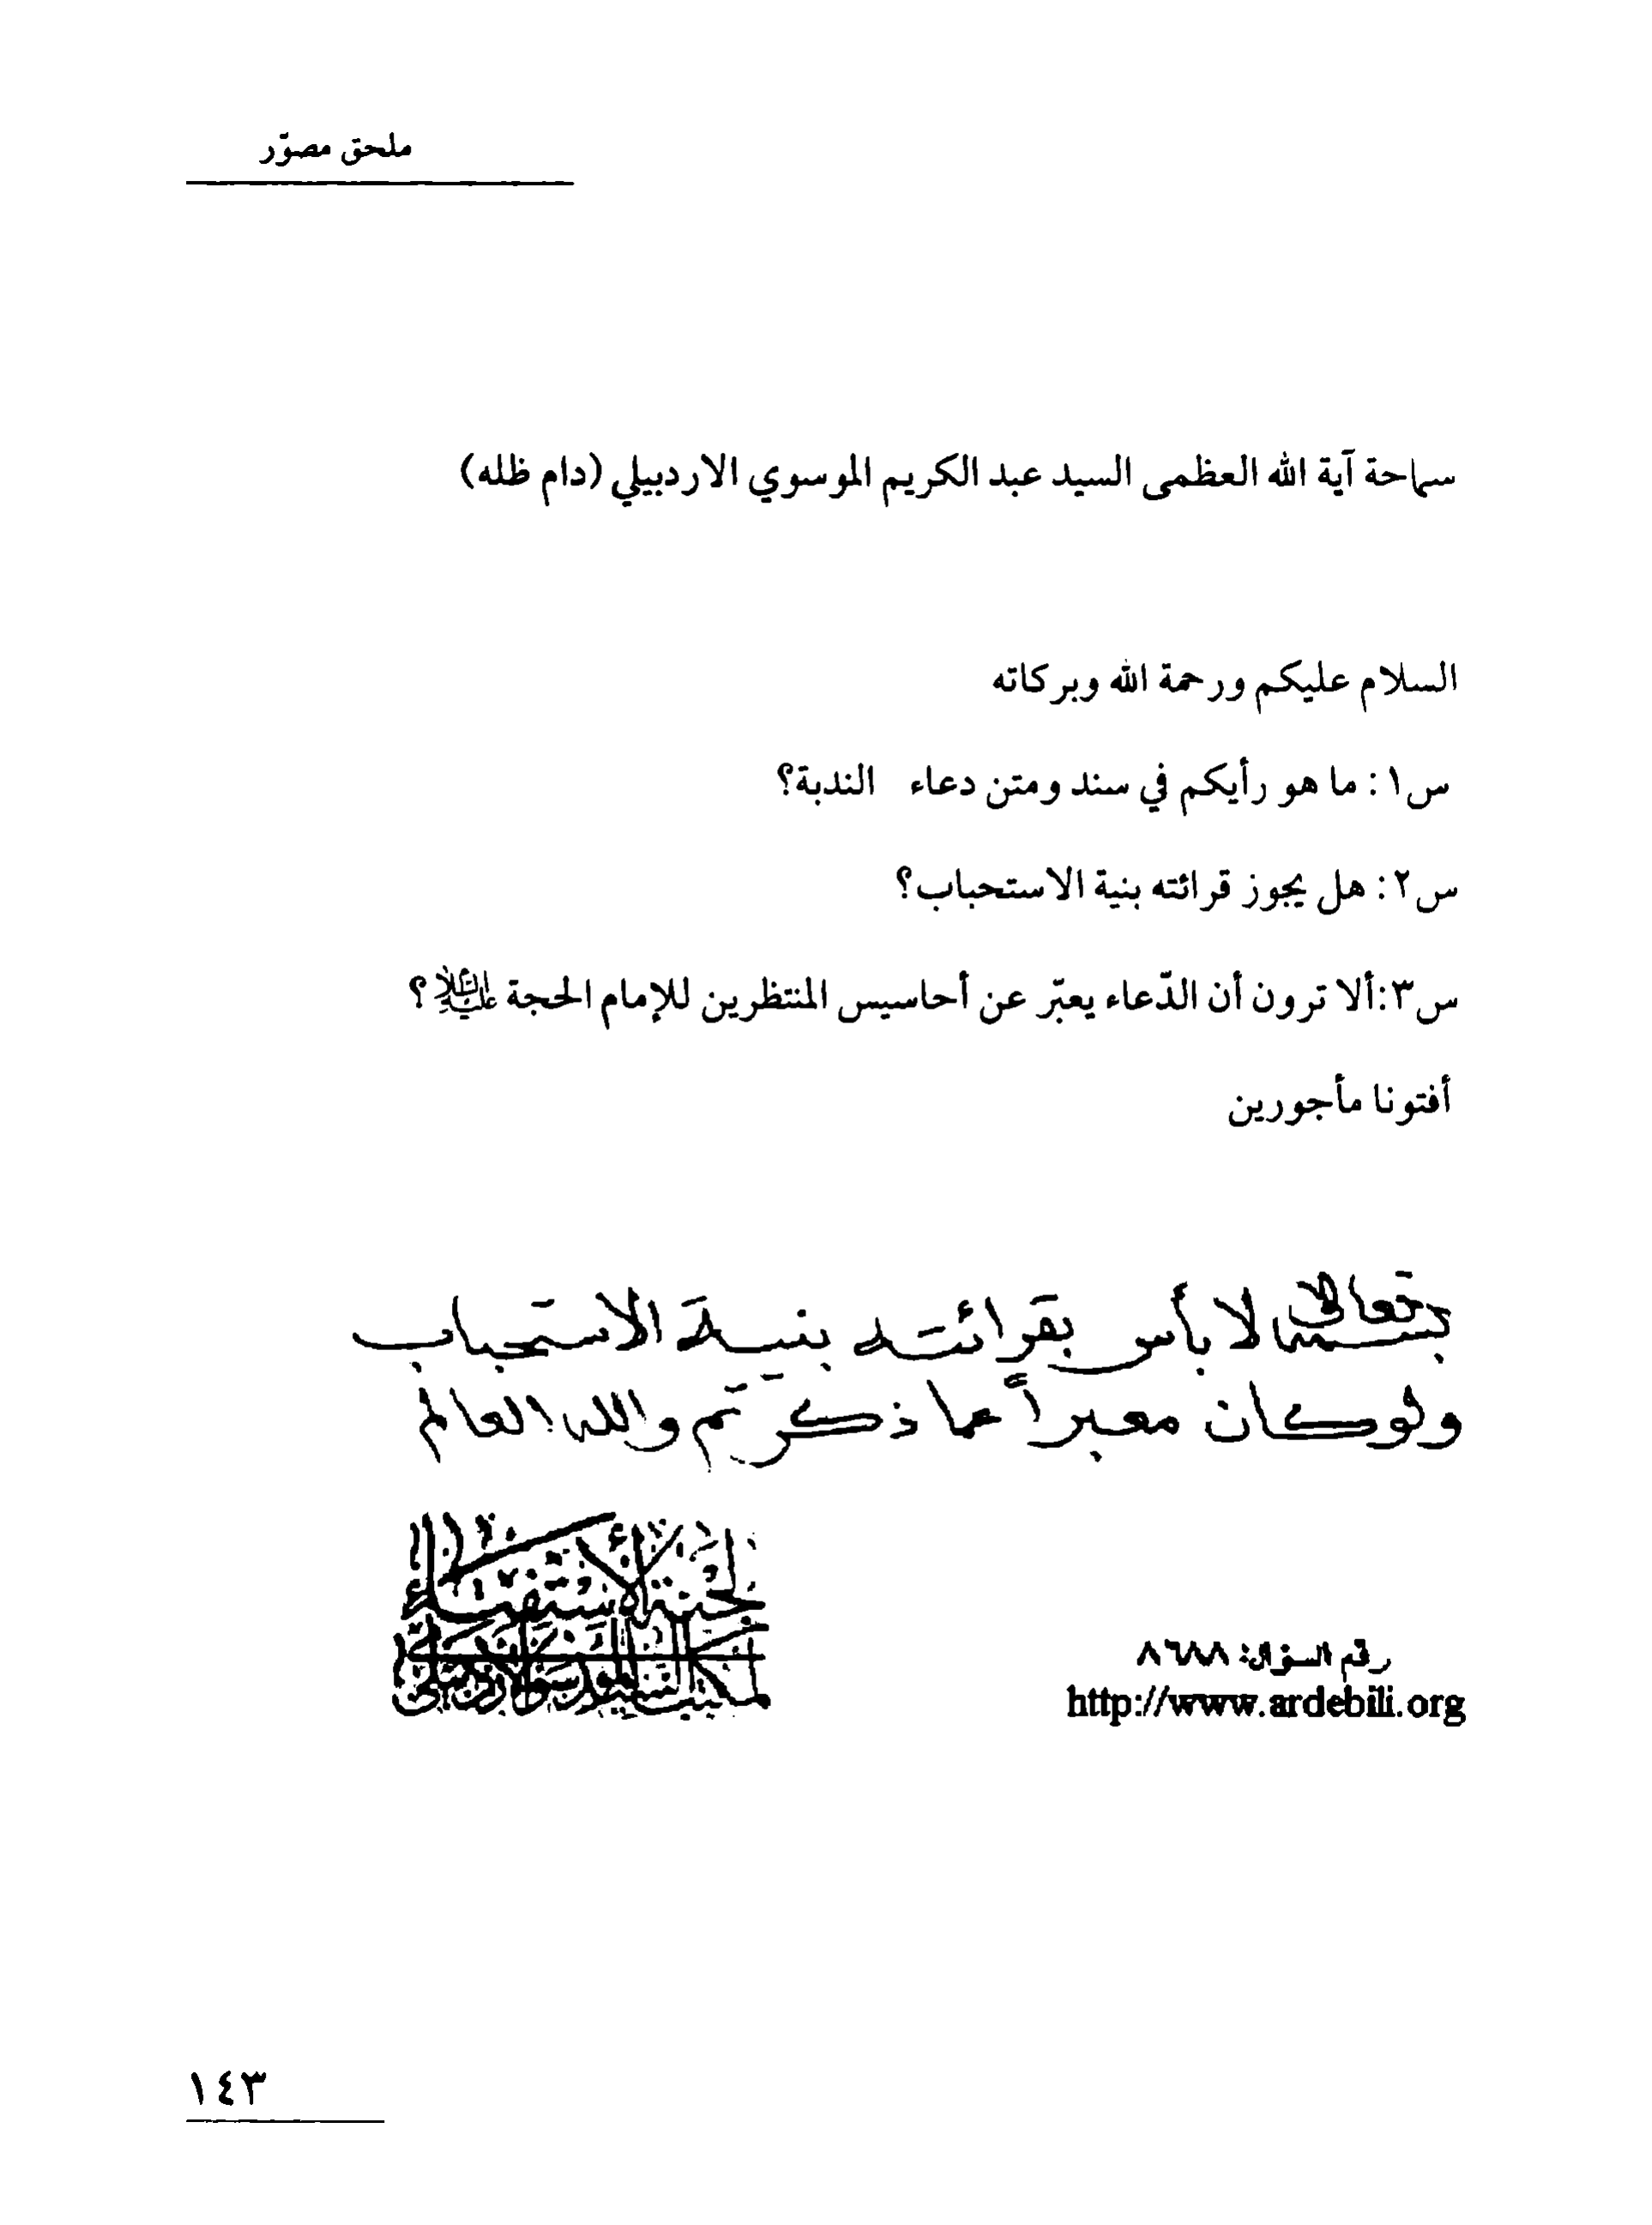 ملحق مصوّر
سماحة آية الله العظمى السيد عبد الكريم الموسوي الاردبيلي (دام ظله)
السلام عليكم ورحمة الله وبركاته
س١: ما هو رأيكم في سند ومتن دعاء الندبة؟
س٢: هل يجوز قرائته بنية الاستحباب؟
س٣:ألا ترون أن الدّعاء يعبّر عن أحاسيس المنتظرين للإمام الحجة عليه السلام؟
أفتونا مأجورين
بسمه تعالى لا بأس بقرائته بنية الاستحباب
ولو كان معبراً عما ذكرتم والله العالم
لجنة الاستفتاء
رقم السؤال:
http://www.ardebili.org
١٤٣